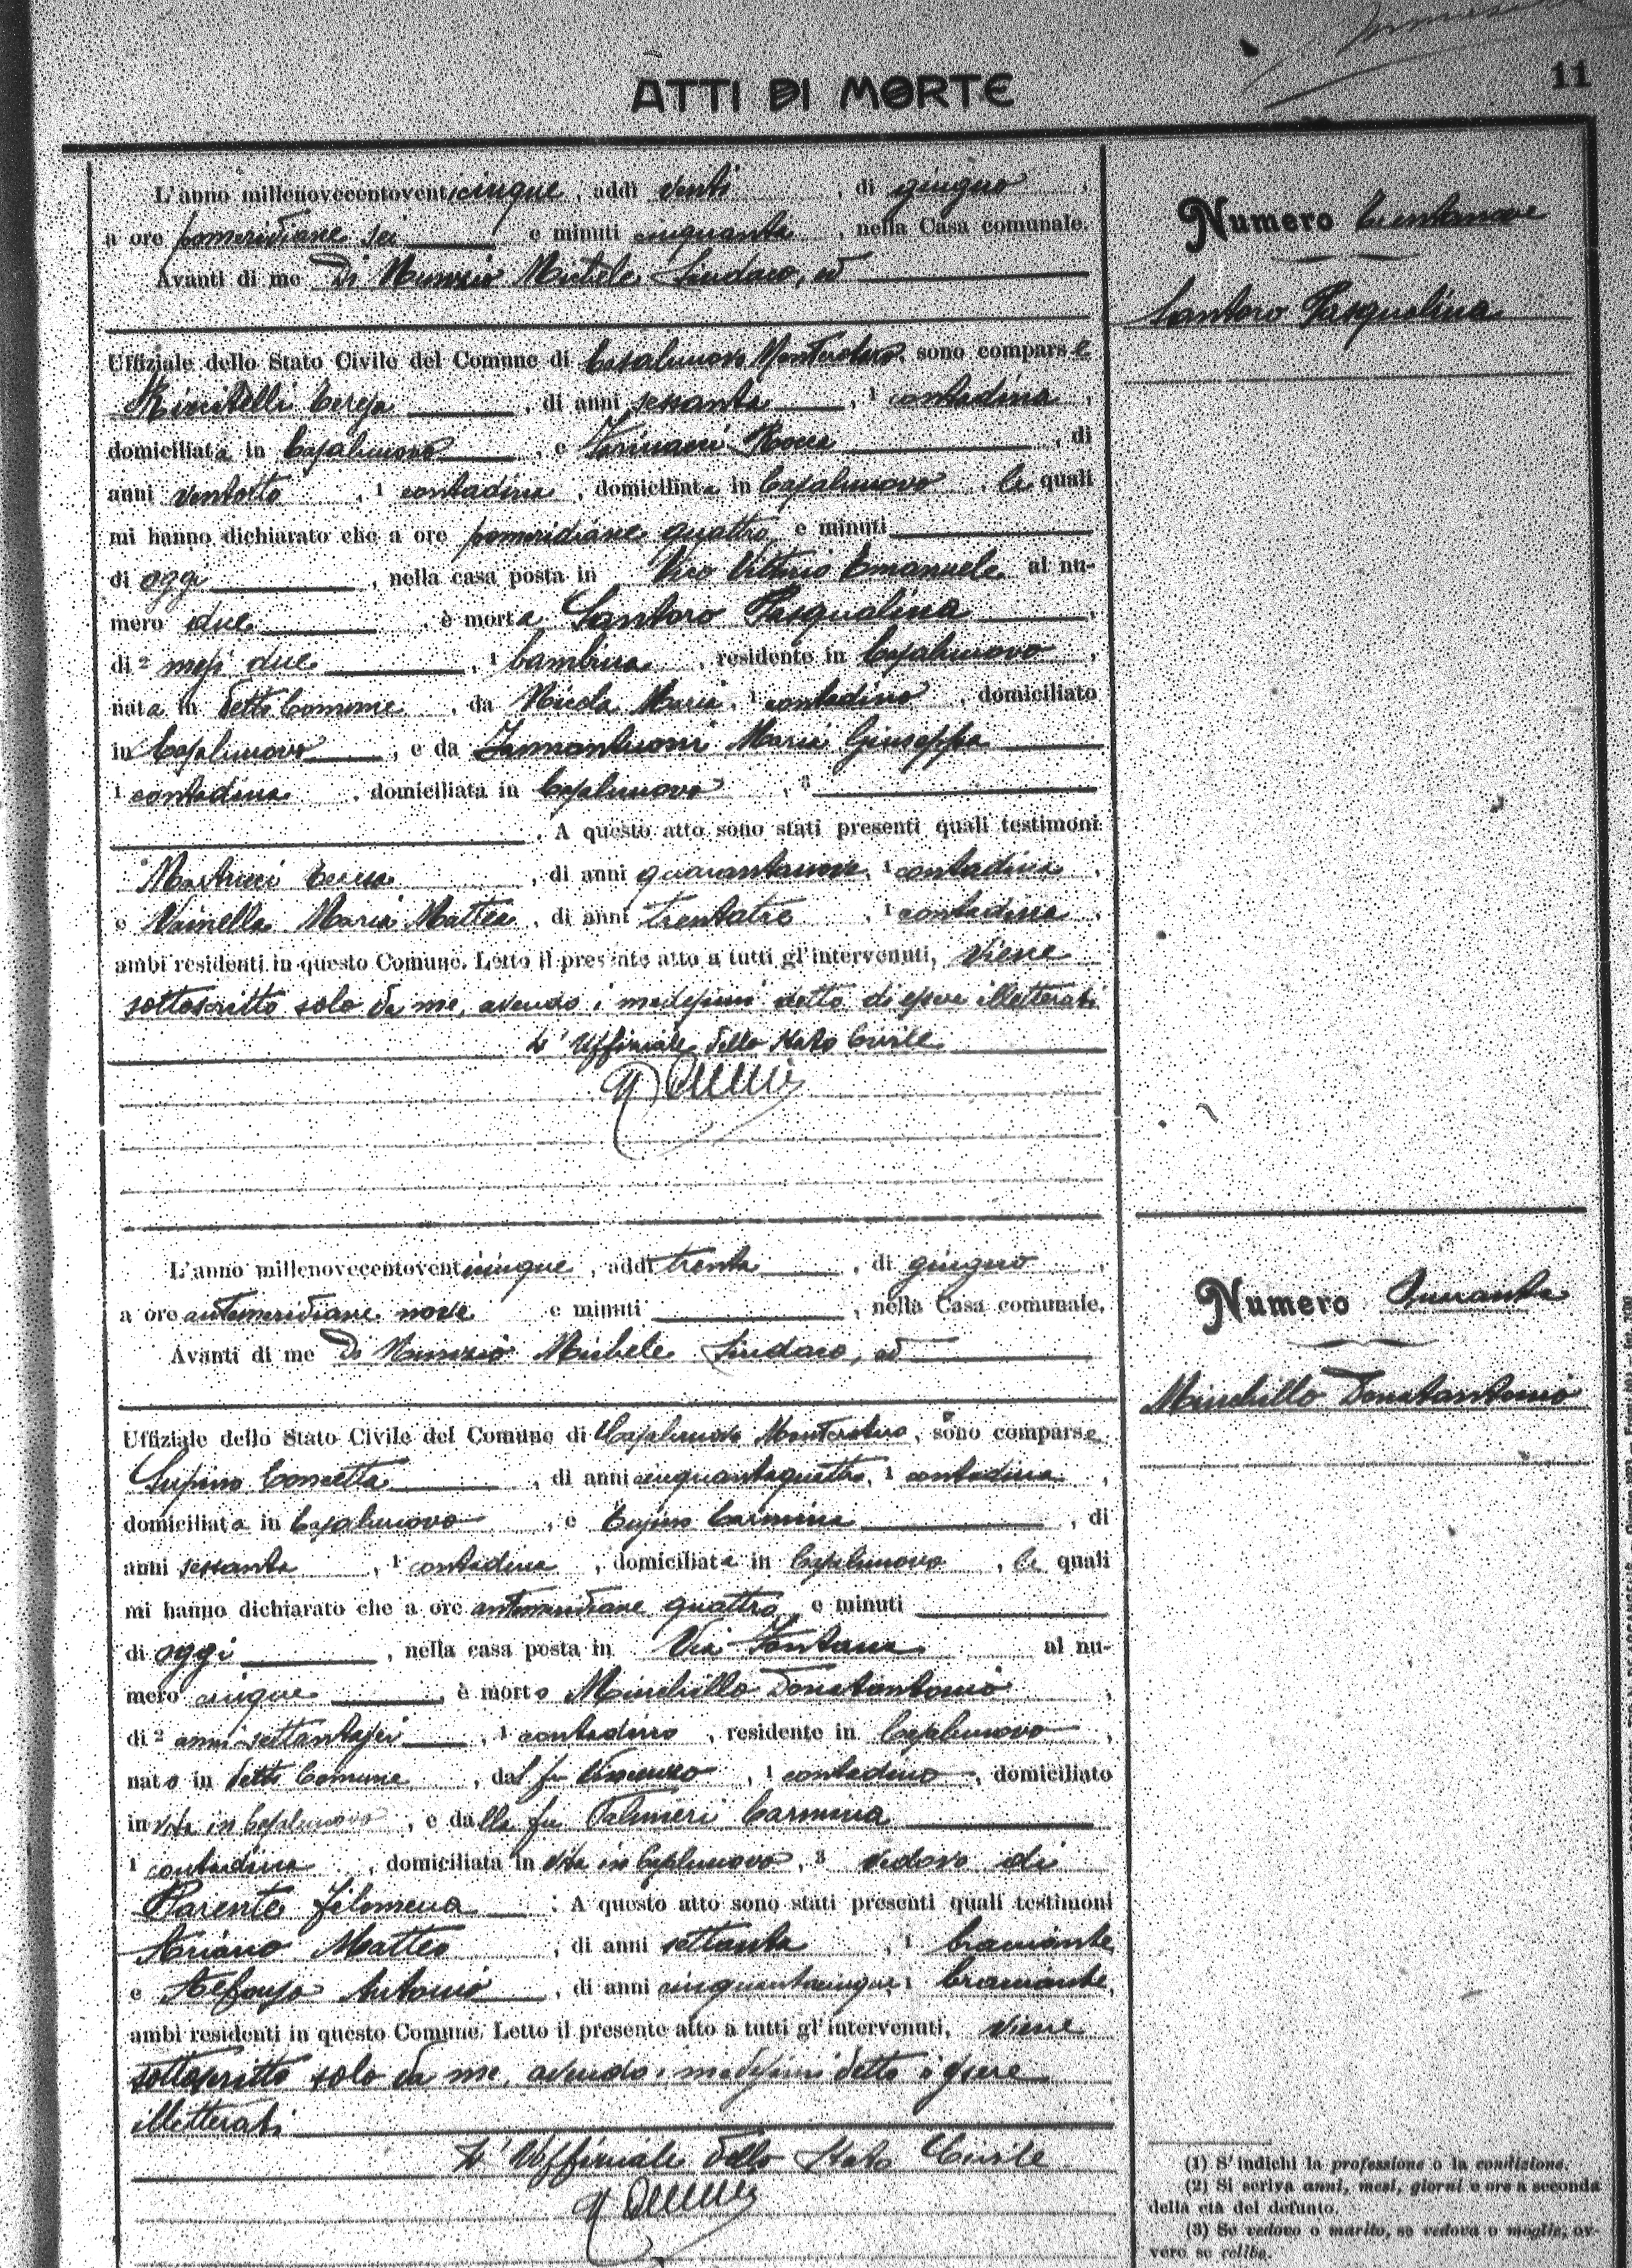 ATTI DI MORTE
11
L'anno millenovecentoventicinque, addì venti, di giugno,
a ore pomeridiane sei e minuti cinquanta, nella Casa comunale.
Avanti di me Di Nunzio Michele Sindaco, ed
Uffiziale dello Stato Civile del Comune di Casalnuovo Monterotaro, sono comparse
Teresa, di anni sessanta, 1 contadina,
domiciliata in Casalnuovo, e Rocca, di
anni ventotto, 1 contadina, domiciliata in Casalnuovo, le quali
mi hanno dichiarato che a ore pomeridiane quattro e minuti
di oggi, nella casa posta in Vico Vittorio Emanuele al nu-
mero due, è morta Santoro Pasqualina,
di 2 mesi due, 1 bambina, residente in Casalnuovo,
nata in detto Comune, da Nicola Maria, 1 contadino, domiciliato
in Casalnuovo, e da Iannantuoni Maria Giuseppa
1 contadina, domiciliata in Casalnuovo, 3
. A questo atto sono stati presenti quali testimoni
Martucci, di anni quarantanove, 1 contadina,
e Vainella Maria Mattea, di anni trentatre, 1 contadina,
ambi residenti in questo Comune. Letto il presente atto a tutti gl'intervenuti, viene
sottoscritto solo da me, avendo i medesimi detto di essere illetterati
L'Uffiziale dello Stato Civile
Numero trentanove
Santoro Pasqualina
L'anno millenovecentoventicinque, addì trenta, di giugno,
a ore antimeridiane nove e minuti, nella Casa comunale.
Avanti di me Di Nunzio Michele Sindaco, ed
Uffiziale dello Stato Civile del Comune di Casalnuovo Monterotaro, sono comparse
Supino Concetta, di anni cinquantaquattro, 1 contadina,
domiciliata in Casalnuovo, e Carmina, di
anni sessanta, 1 contadina, domiciliata in Casalnuovo, le quali
mi hanno dichiarato che a ore antimeridiane quattro, e minuti
di oggi, nella casa posta in Via Fontana al nu-
mero cinque, è morto Minchillo Donatantonio,
di 2 anni settantasei, 1 contadino, residente in Casalnuovo,
nato in detto Comune, dal fu Vincenzo, 1 contadino, domiciliato
in vita in Casalnuovo, e dalla fu Palmieri Carmina
1 contadina, domiciliata in vita in Casalnuovo, 3 vedovo di
Parente Filomena. A questo atto sono stati presenti quali testimoni
Ariano Matteo, di anni settanta, 1 bracciante,
e Alfonso Antonio, di anni cinquantacinque, 1 bracciante,
ambi residenti in questo Comune. Letto il presente atto a tutti gl'intervenuti, viene
sottoscritto solo da me, avendo i medesimi detto d'essere
illetterati
L'Uffiziale dello Stato Civile
Numero Quaranta
Minchillo Donatantonio
(1) S'indichi la professione o la condizione.
(2) Si scriva anni, mesi, giorni e ore a seconda
della età del defunto.
(3) Se vedovo o marito, se vedova o moglie, ov-
vero se celibe.